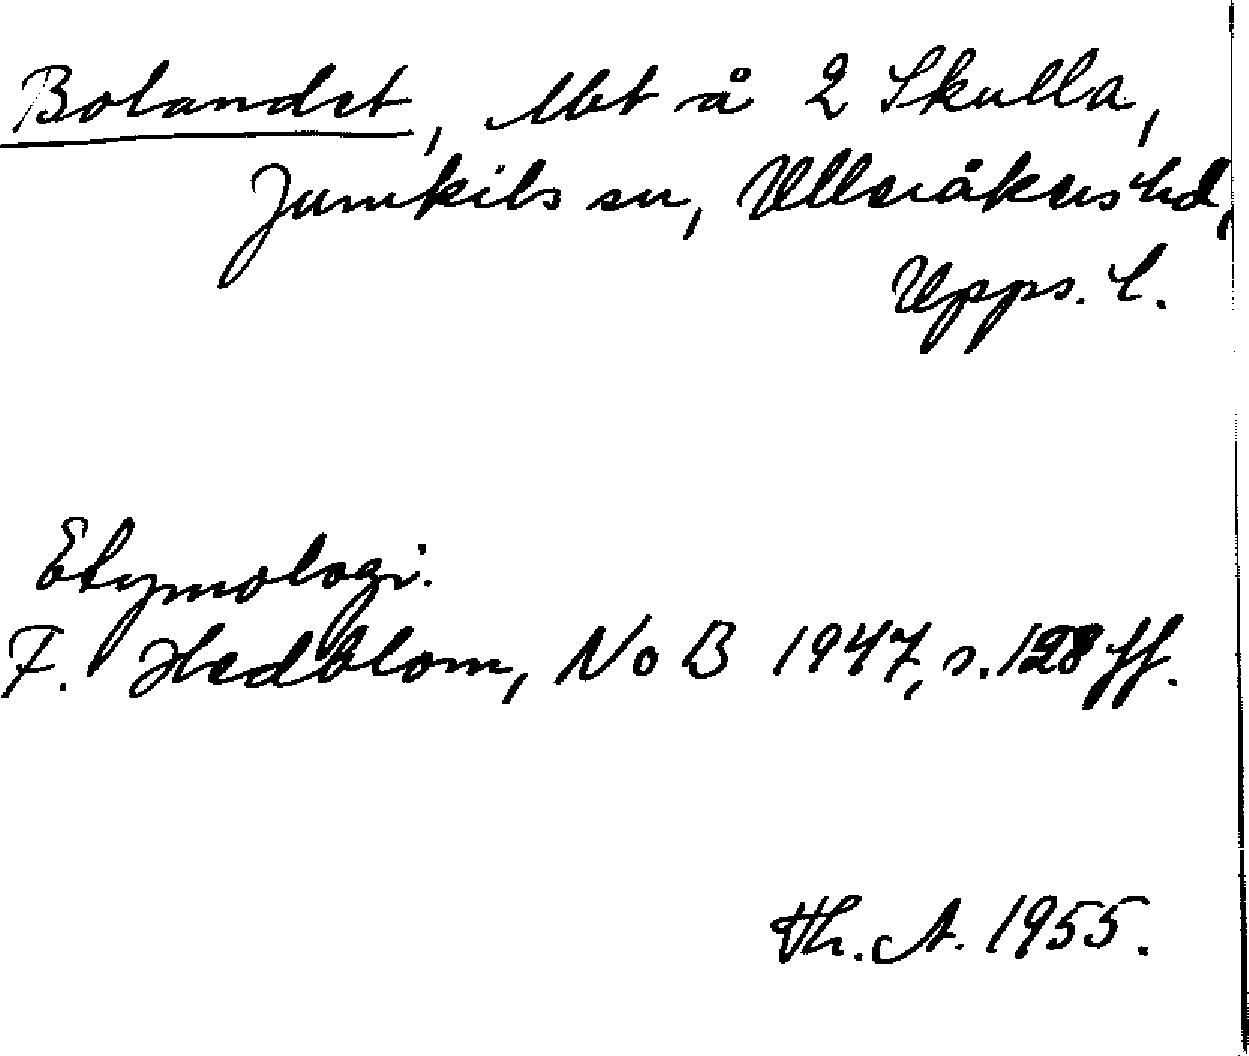 Bolandet, Mbt å 2 Skulla,
Jumkils sn, Ulleråkers hd,
Upps. l.
Etymologi.
F. Hedblom, NoB 1947, s. 128 ff.
Th. A. 1955.